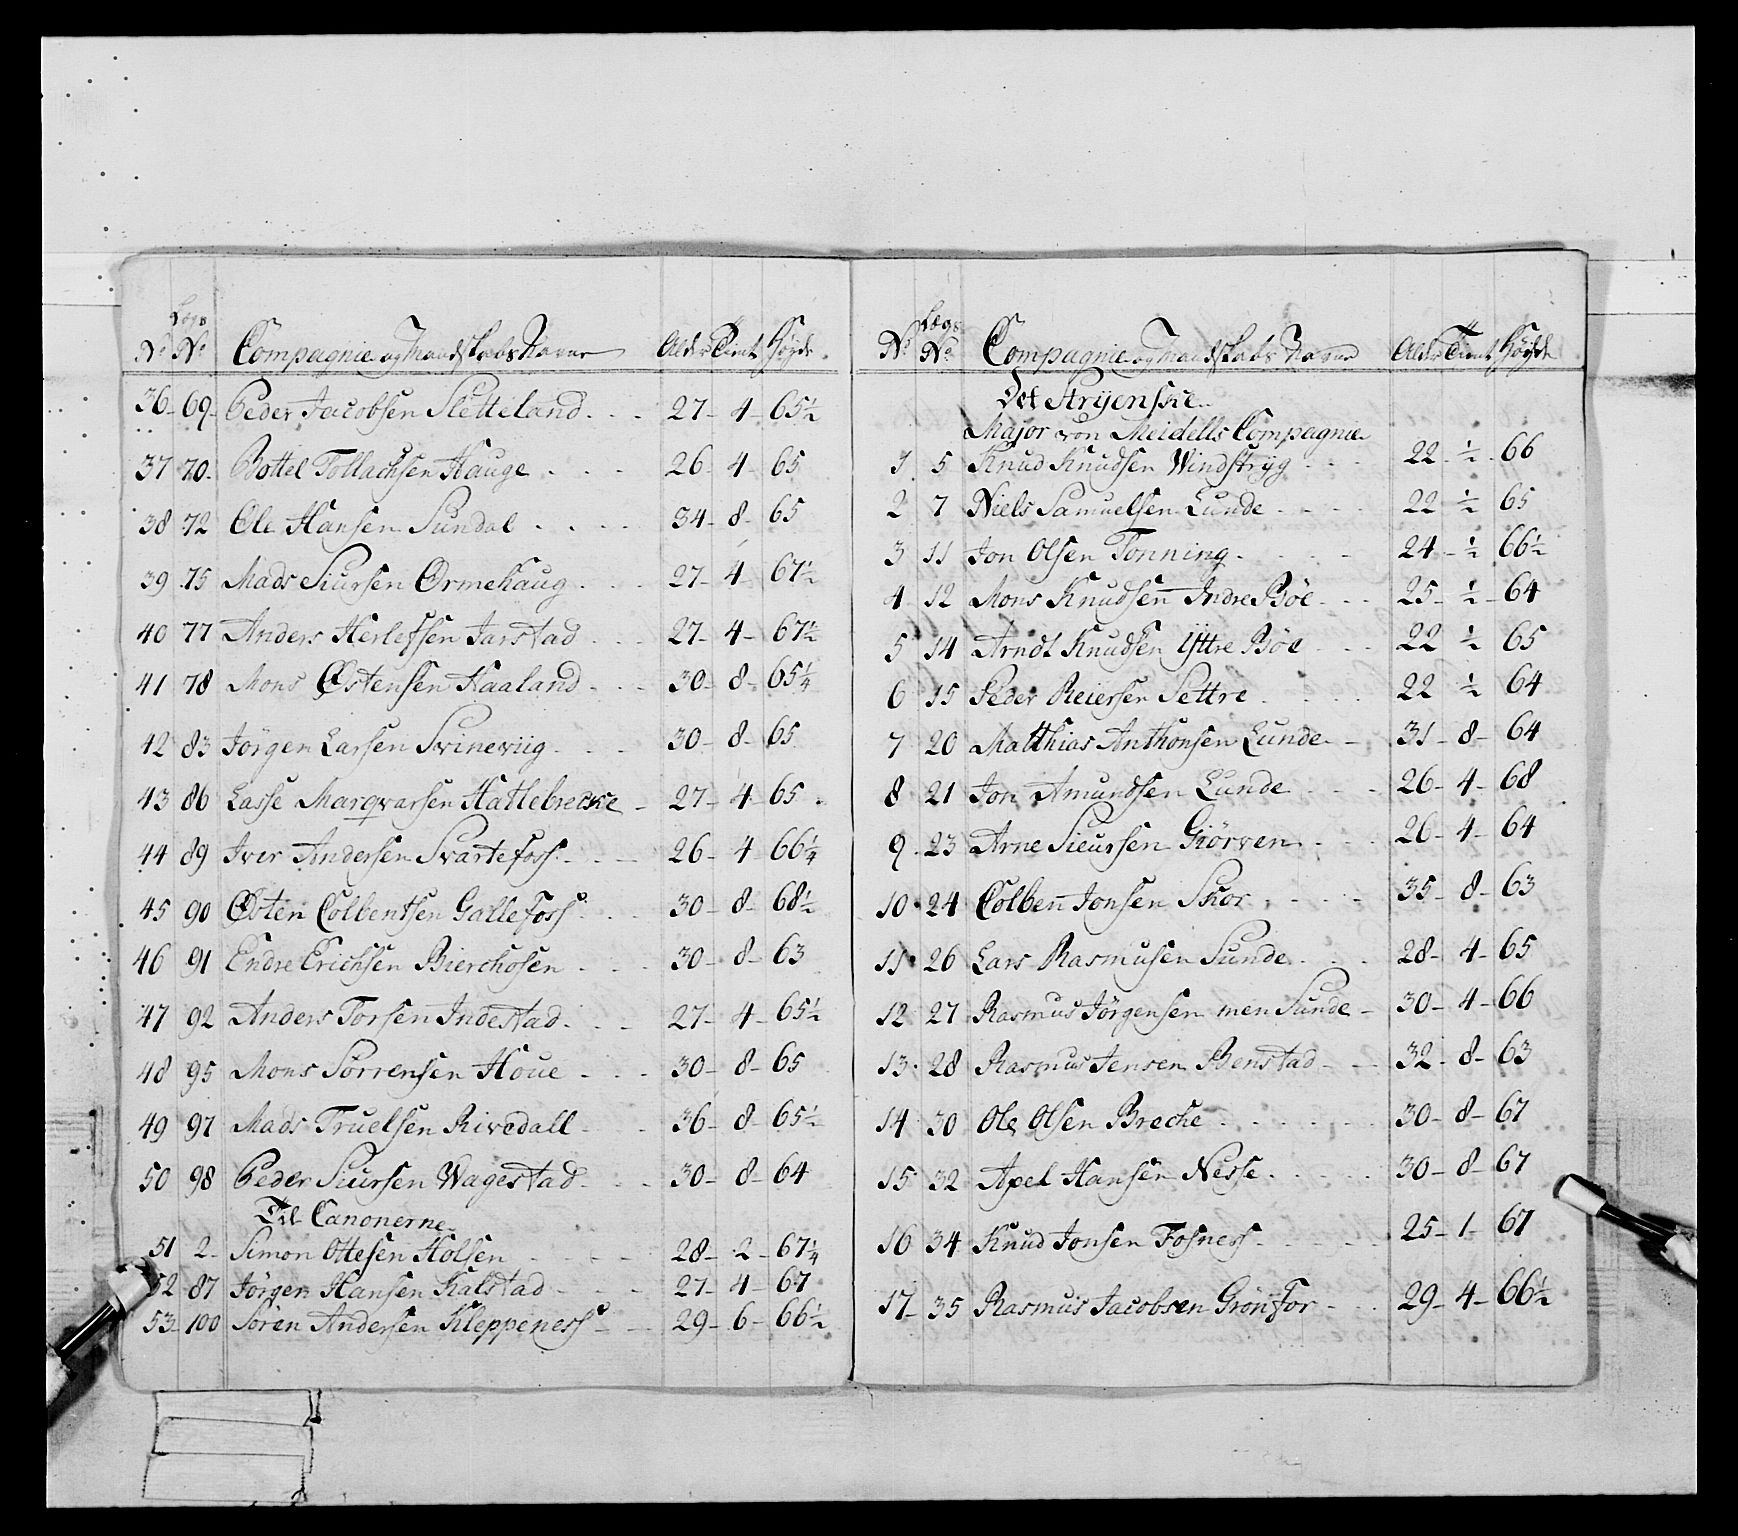 Lægs
No No Compagnie og Mandskabs Navne Alder Tient Høyde
36 69 Peder Jacobsen Sletteland 27 4 65½
37 70 Bottel Tollachsen Hauge 26 4 65
38 72 Ole Hansen Sundal 34 8 65
39 75 Mads Siursen Ormehaug 27 4 67½
40 77 Anders Herlefsen Jarstad 27 4 67½
41 78 Mons Østensen Haaland 30 8 65¼
42 83 Jörgen Larsen Svineviig 30 8 65
43 86 Lasse Marqvarsen Hattlebrecke 27 4 65
44 89 Iver Andersen Svartefoss 26 4 66¼
45 90 Østen Colbentsen Gallefoss 30 8 68½
46 91 Endre Erichsen Bierchosen 30 8 63
47 92 Anders Torsen Indestad 27 4 65½
48 95 Mons Sörrensen Houe 30 8 65
49 97 Mads Truelsen Rivedall 36 8 65½
50 98 Peder Siursen Wagestad 30 8 64
Til Canonerne
51 2 Simon Ottesen Holsen 28 2 67¼
52 87 Jörgen Hansen Kalstad 27 4 67
53 100 Sören Andersen Kleppeness 29 6 66½
Lægs
No No Compagnie og Mandskabs Navne Alder Tient Høyde
Det Stryenske
Major von Meidells Compagnie
1 5 Knud Knudsen Windstryg 22 ½ 66
2 7 Niels Samuelsen Lunde 22 ½ 65
3 11 Jon Olsen Tonning 24 ½ 66½
4 12 Mons Knudsen Indre Böe 25 ½ 64
5 14 Arndt Knudsen Yttre Böe 22 ½ 65
6 15 Peder Reiersen Settre 22 ½ 64
7 20 Matthias Anthonsen Lunde 31 8 64
8 21 Jon Amundsen Lunde 26 4 68
9 23 Arne Sieursen Giörven 26 4 64
10 24 Colben Jonsen Skor 35 8 63
11 26 Lars Rasmusen Sunde 28 4 65
12 27 Rasmus Jörgensen men Sunde 30 4 66
13 28 Rasmus Jensen Benstad 32 8 63
14 30 Ole Olsen Breche 30 8 67
15 32 Axel Hansen Nesse 30 8 67
16 34 Knud Jonsen Fosness 25 1 67
17 35 Rasmus Jacobsen Grönfor 29 4 66½